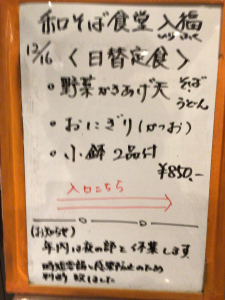 和そば食堂 入福
12/16 〈日替定食〉
・野菜かきあげ天 そば
うどん
・おにぎり(かつお)
・小鉢 2品付
¥850.-
入口こちら
(お知らせ)
年内は夜の部を休業します